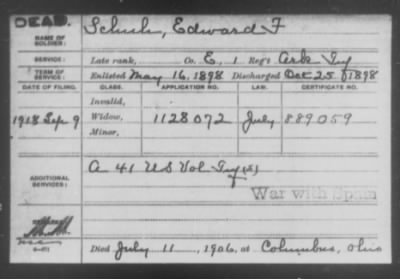 DEAD.
NAME OF SOLDIER: Schuh, Edward F
SERVICE: Late rank, Co. E, 1 Reg't Ark Inf
TERM OF SERVICE: Enlisted May 16, 1898 Discharged Oct 25, 1898
DATE OF FILING. CLASS. APPLICATION NO. LAW. CERTIFICATE NO.
Invalid,
1918 Sep 9 Widow, 1128072 July 889059
Minor,
ADDITIONAL SERVICES: A 41 US Vol Inf (S)
War with Spain
Died July 11, 1906, at Columbus, Ohio